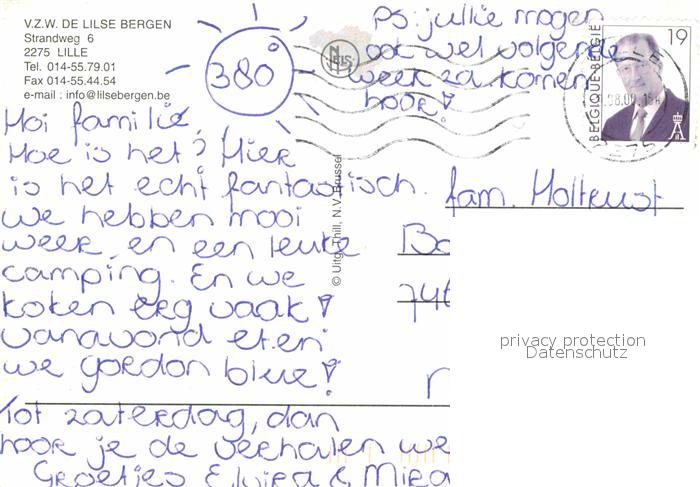 V.Z.W. DE LILSE BERGEN
Strandweg 6
2275 LILLE
Tel. 014-55.79.01
Fax 014-55.44.54
e-mail : info@lilsebergen.be
38°
PS: jullie mogen
ook wel volgende
week za. komen
hoor!
BELGIQUE-BELGIË
19
Hoi familie,
Hoe is het? Hier
is het echt fantastisch.
we hebben mooi
weer, en een leuke
camping. En we
koken erg vaak!
vanavond eten
we gordon blue!
Tot zaterdag, dan
hoor je de verhalen we
Groetjes Elvira & Mira
© Uitg. Thill, N.V. Brussel
fam. Holtrust
Bo
746
privacy protection
Datenschutz